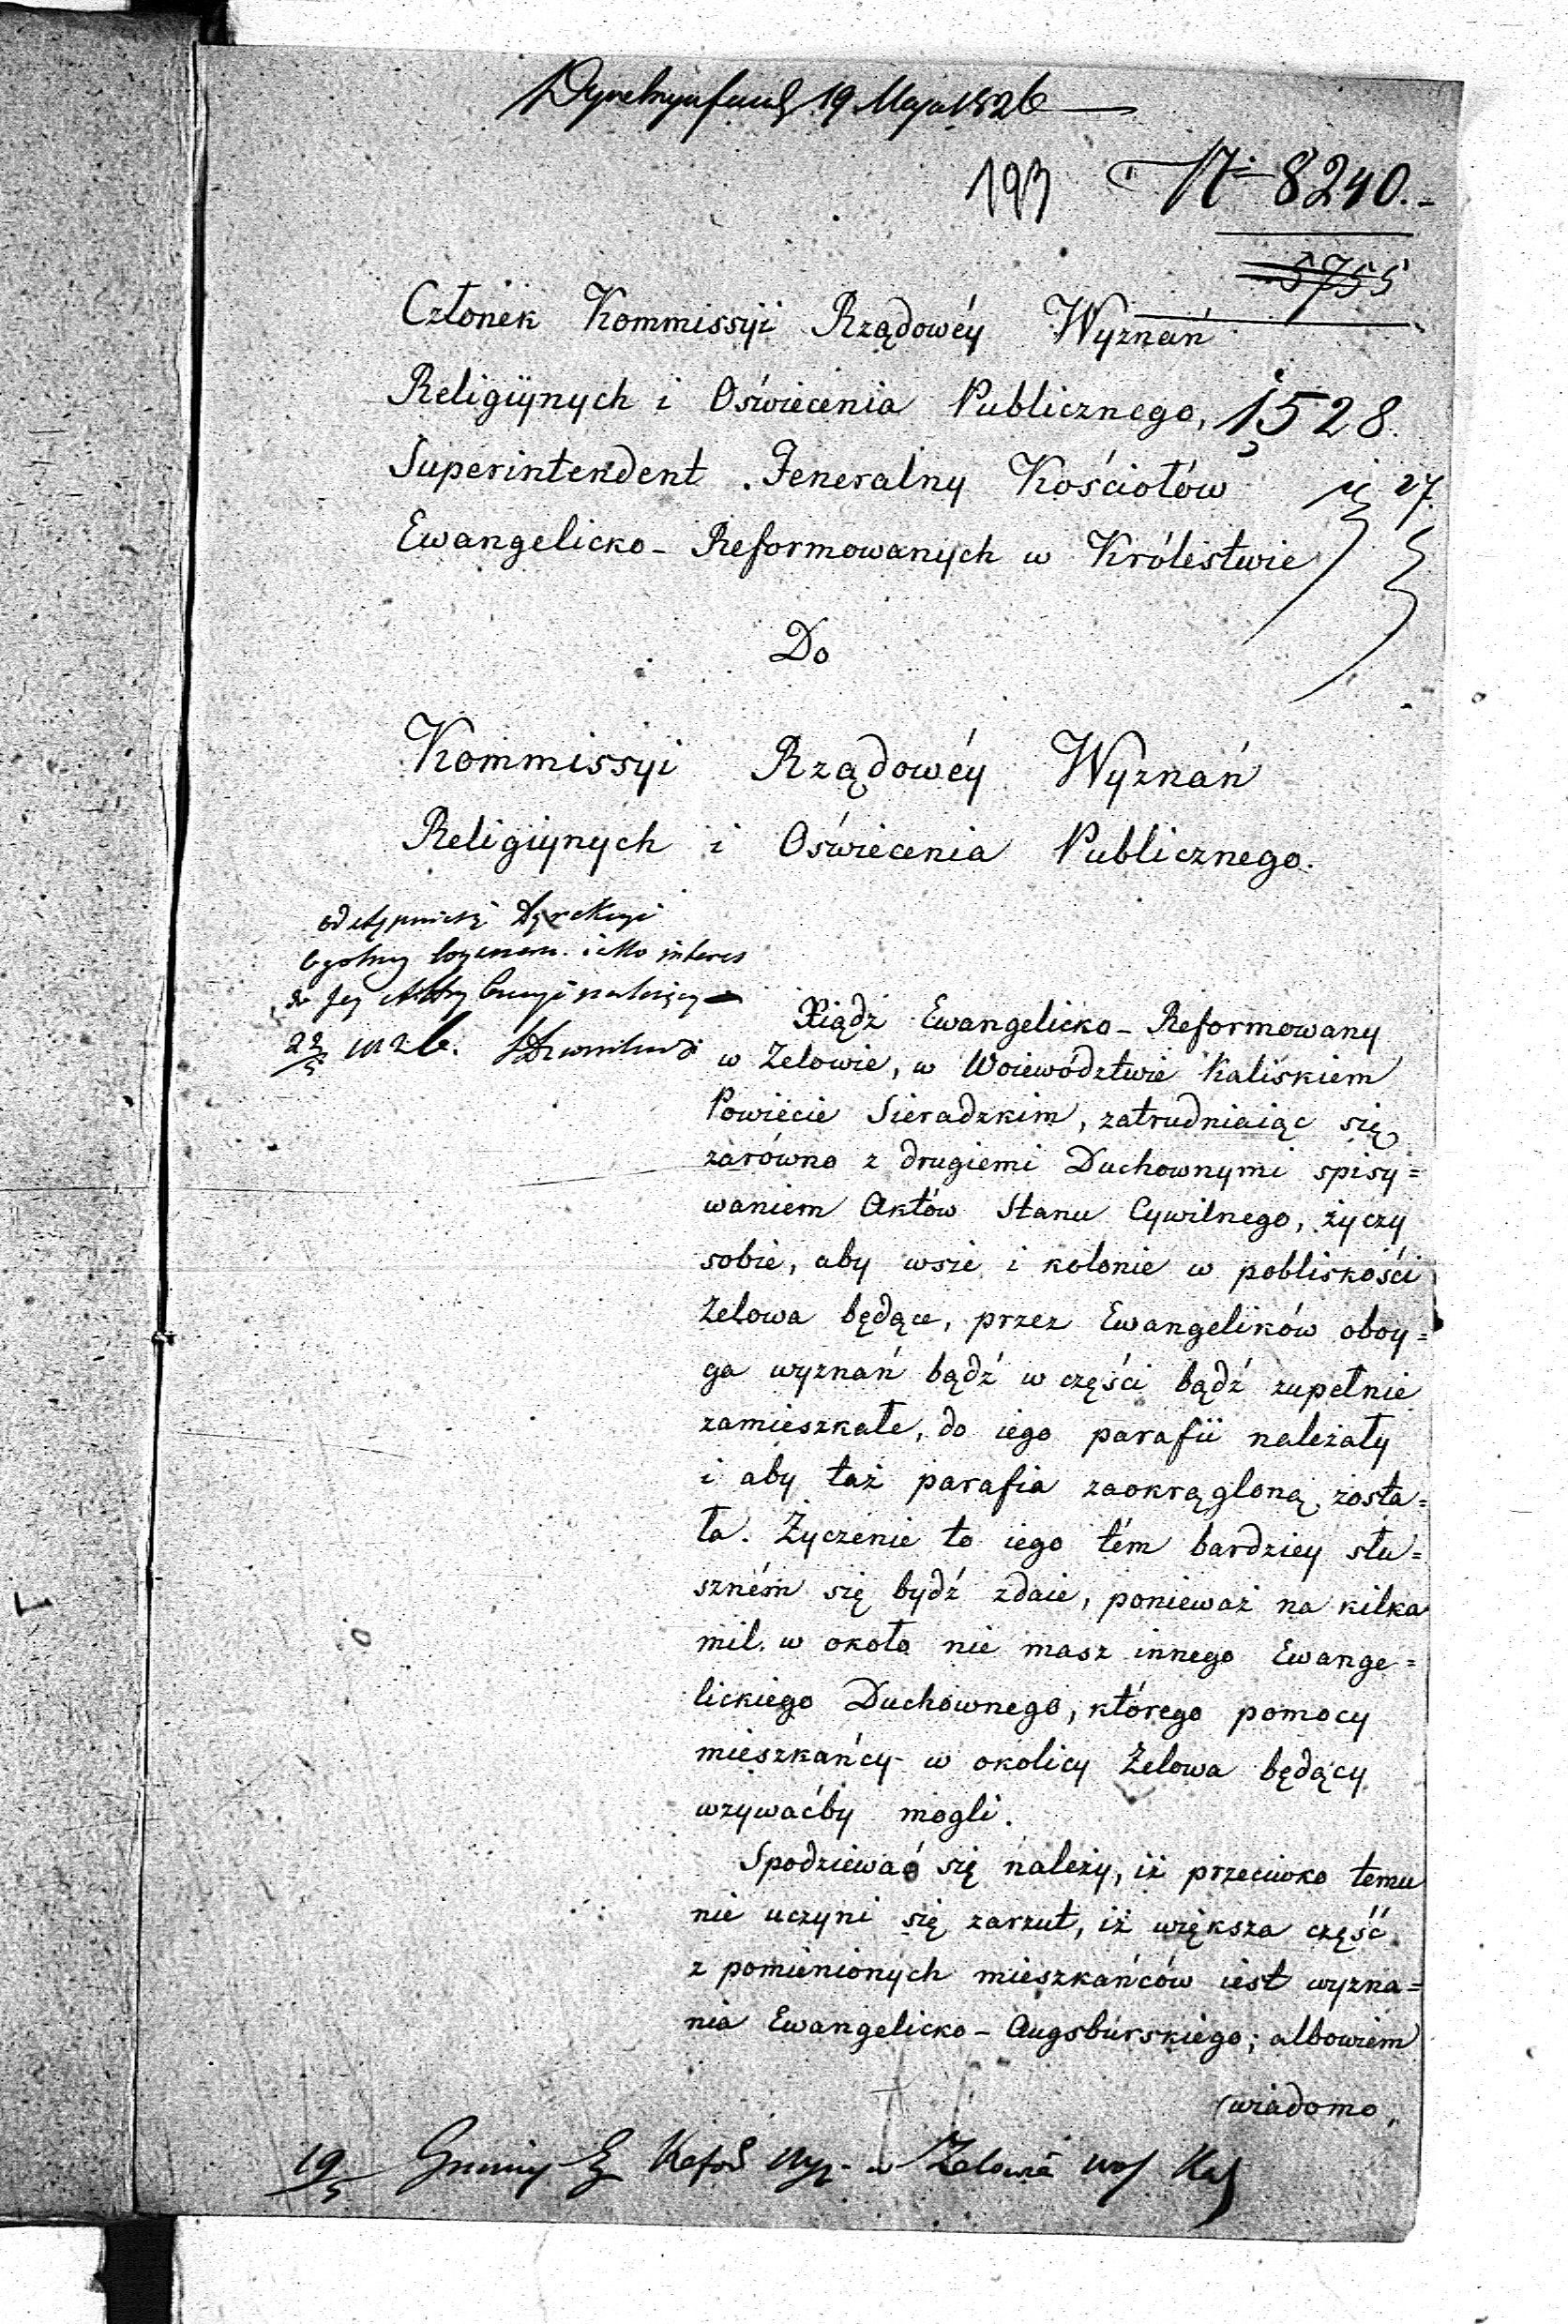 19 Maja 1826
193 N 8240.
5755
Członek Kommissyi Rządowéy Wyznań
Religiynych i Oświecenia Publicznego, 1528.
Superintendent Jeneralny Kościołów 27.
Ewangelicko-Reformowanych w Królestwie
Do
Kommissyi Rządowéy Wyznań
Religiynych i Oświecenia Publicznego.
interes
Xiądz Ewangelicko-Reformowany
w Zelowie, w Woiewództwie Kaliskiem
Powiecie Sieradzkim, zatrudniaiąc się
zarówno z drugiemi Duchownymi spisy=
waniem Aktów Stanu Cywilnego, życzy
sobie, aby wsie i kolonie w pobliskości
Zelowa będące, przez Ewangelików oboy=
ga wyznań bądź w części bądź zupełnie
zamieszkałe, do iego parafii należały
i aby taż parafia zaokrągloną zosta=
ła. Życzenie to iego tém bardziey słu=
szném się bydź zdaie, ponieważ na kilka
mil w około nie masz innego Ewange=
lickiego Duchownego, którego pomocy
mieszkańcy w okolicy Zelowa będący
wzywaćby mogli.
Spodziewać się należy, iż przeciwko temu
nie uczyni się zarzut, iż większa część
z pomienionych mieszkańców iest wyzna=
nia Ewangelicko-Augsburskiego; albowiem
wiadomo,
19/5 Gminy Ew Refor Wyz. w Zelowie Woj Kal